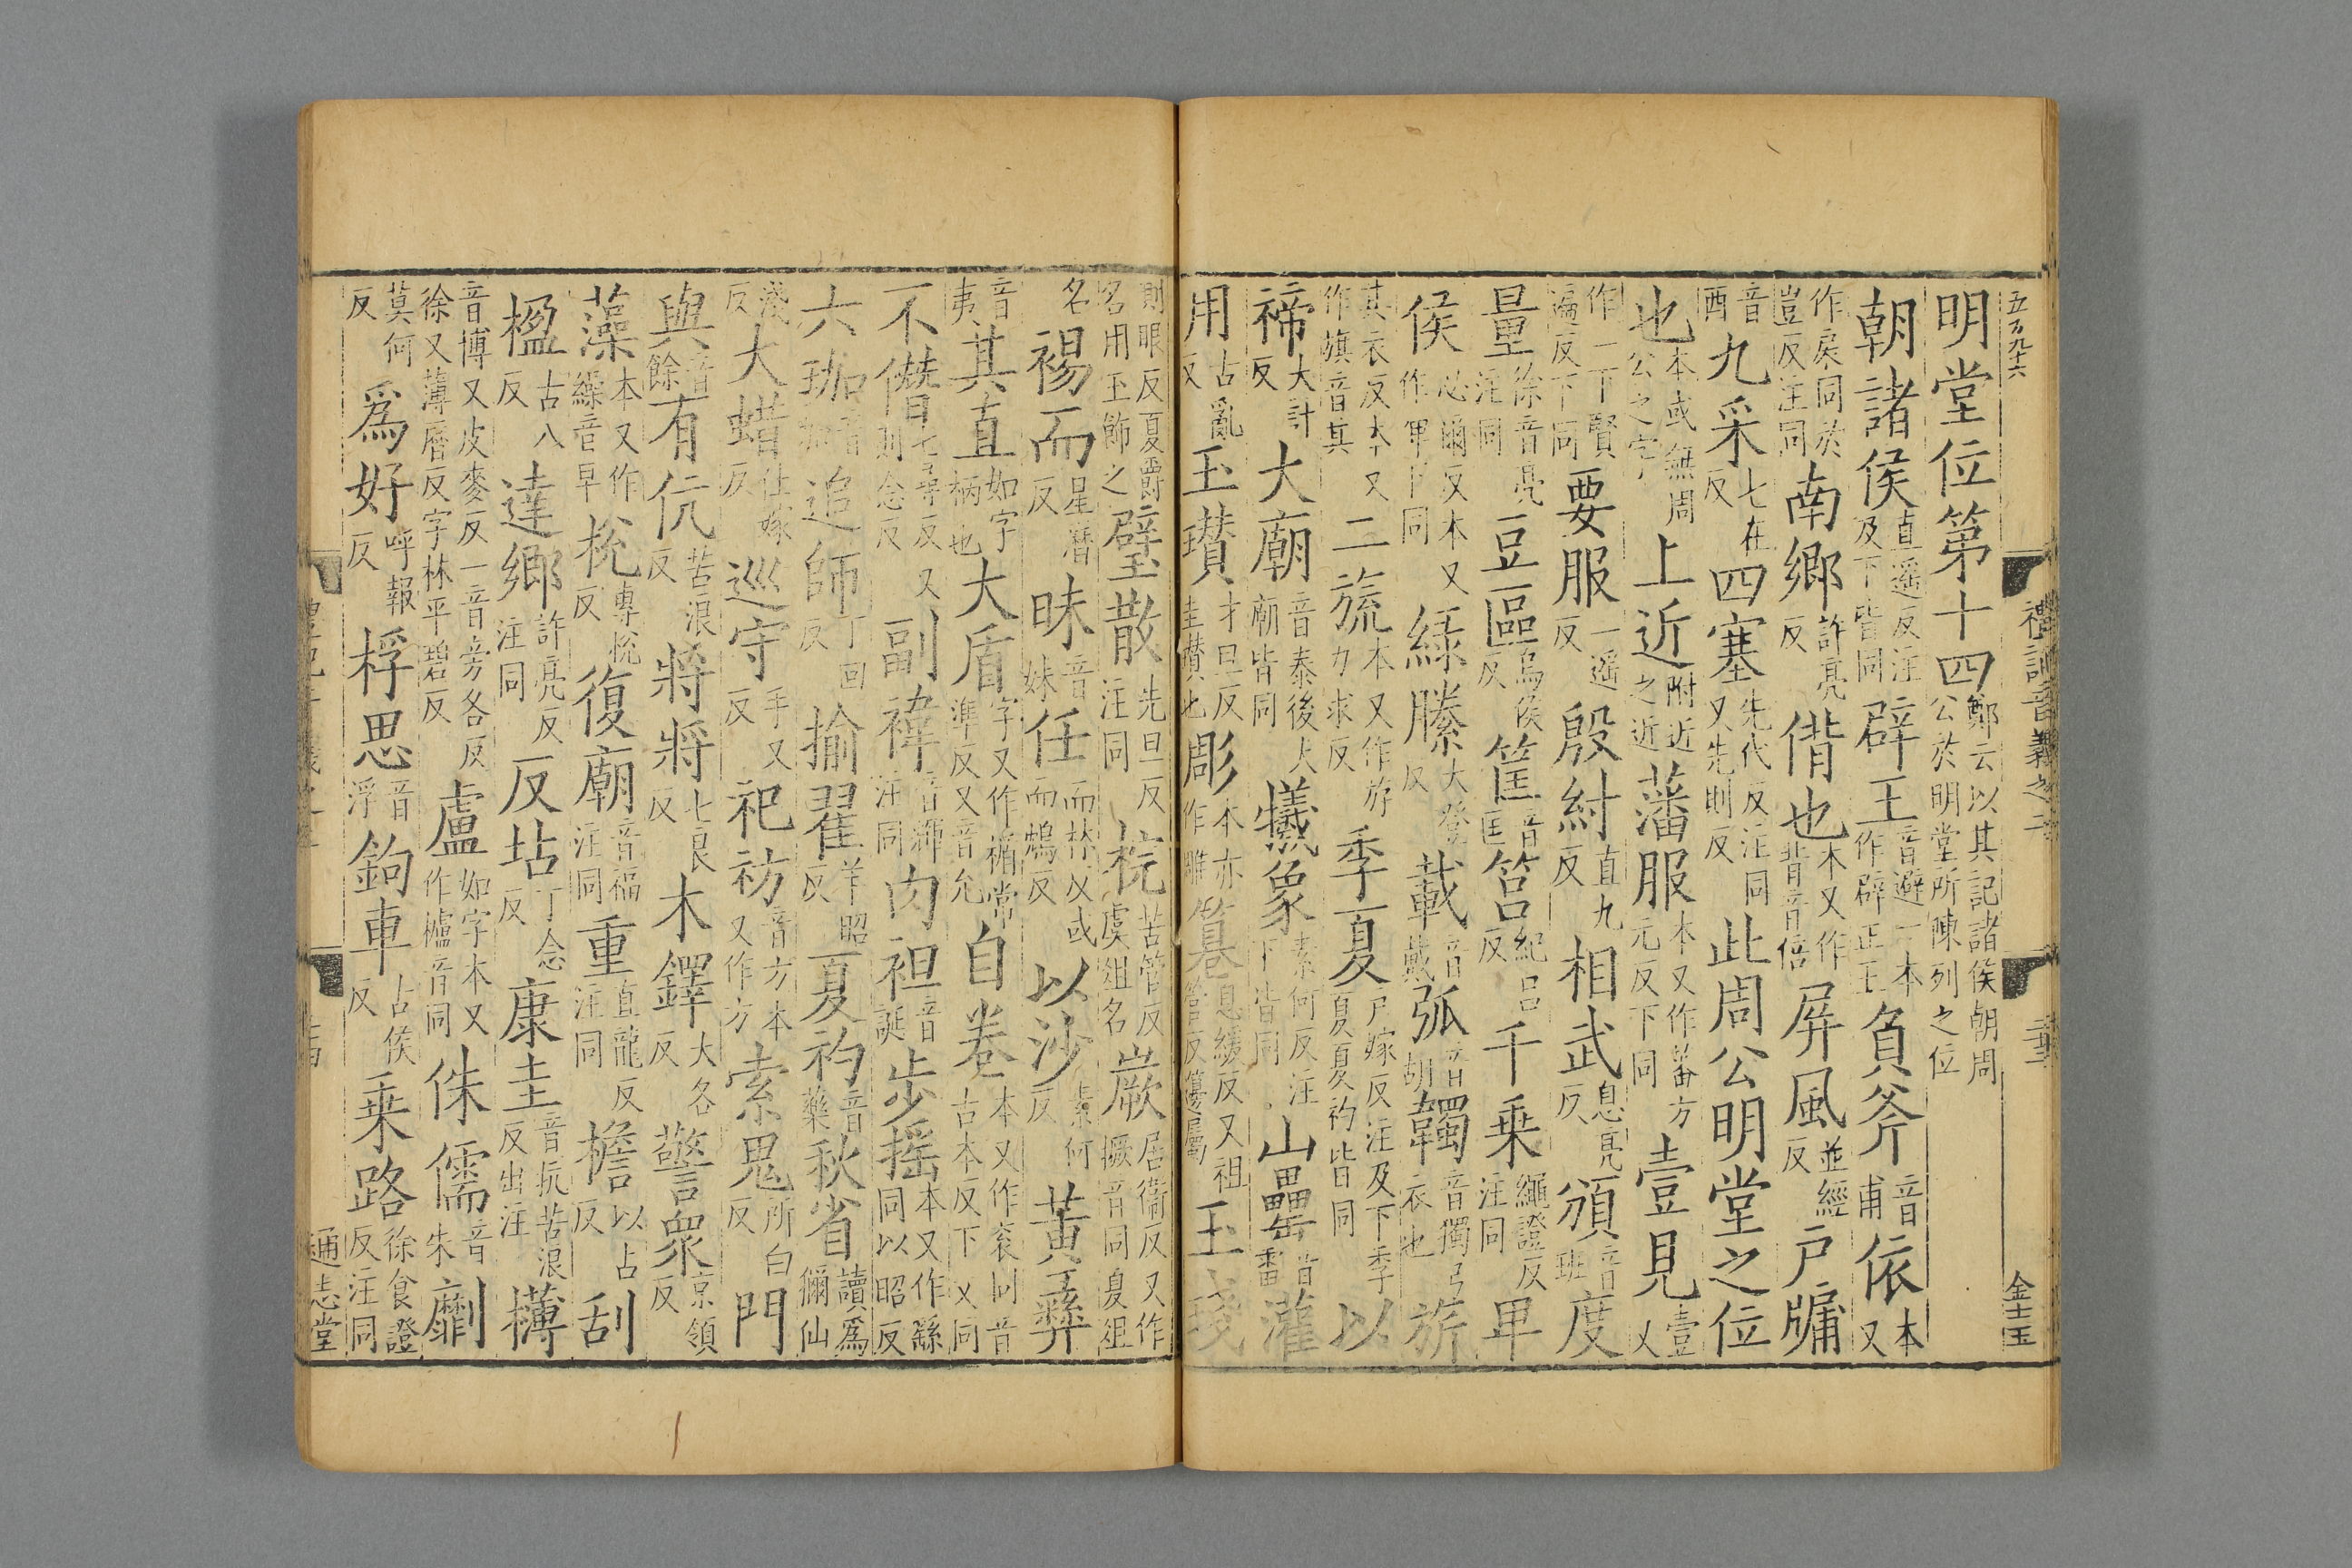 五万九十六
禮記音義之二
金士玉
明堂位第十四鄭云以其記諸侯朝周公於明堂所陳列之位
朝諸侯直遥反注及下皆同辟王音避一本作辟正王負斧音甫依本又
作扆同於豈反注同南鄉許亮反偝也本又作背音倍屏風並經反戶牖
音酉九采七在反四塞先代反注同又先則反此周公明堂之位
也本或無周公之字上近附近之近藩服本又作蕃方元反下同壹見壹又
作一下賢遍反下同要服一遥反殷紂直九反相武息亮反頒音班度
量徐音亮注同豆區烏侯反筐音匡筥紀呂反千乗繩證反注同畢
侯必爾反本又作卑下同緑縢大登反載音戴弧音胡韣音獨弓衣也旂
其衣反本又作旗音其二旒本又作斿力求反季夏戶嫁反注及下季夏夏礿皆同以
禘大計反大廟音泰後大廟皆同犧象素何反注下皆同山罍音雷灌
用古亂反玉瓚才旦反圭瓚也彫本亦作雕篹息緩反又祖管反籩屬玉琖
則眼反夏爵名用玉飾之璧散先旦反注同梡苦管反虞俎名嶡居衛反又作橛音同夏俎
名裼而星曆反昧音妹任而林反或而鴆反以沙素何反黃彝
音夷其直如字柄也大盾字又作楯常準反又音允自卷本又作衮同音古本反下文同
不僭七尋反又則念反副褘音輝注同肉袒音誕步摇本又作繇同以昭反
六珈音加追師丁回反揄翟羊昭反夏礿音藥秋省讀爲獮仙
淺反大蜡仕嫁反巡守手又反祀祊音方本又作方索鬼所白反門
與音餘有伉苦浪反將將七良反木鐸大各反警衆京領反
藻本又作繰音早梲專梲反復廟音福注同重直龍反注同檐以占反刮
楹古八反達鄉許亮反注同反坫丁念反康圭音抗苦浪反出注欂
音博又皮麥反一音旁各反徐又薄厝反字林平碧反盧如字本又作櫨音同侏儒音朱劘
莫何反爲好呼報反桴思音浮鉤車古侯反乗路徐食證反注同
通志堂